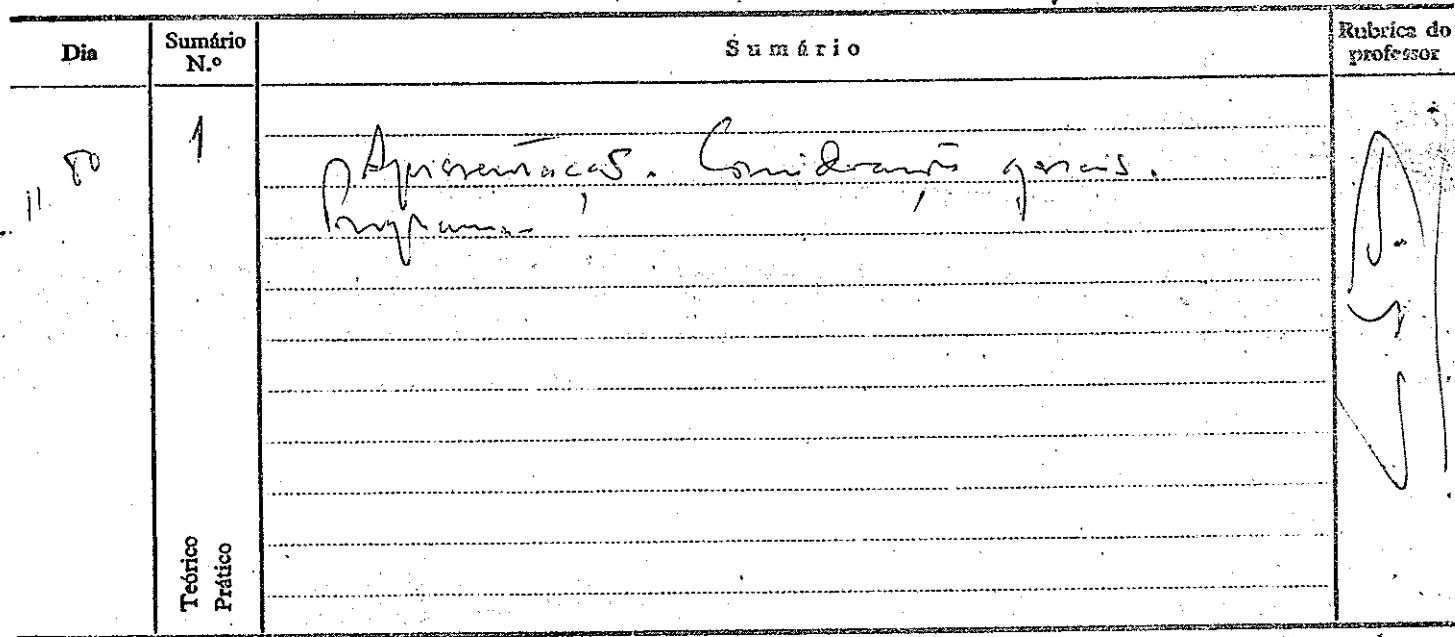 Dia
Sumário
N.º
Sumário
Rubrica do
professor
1
Apresentação. Considerações gerais.
Programa
Teórico
Prático